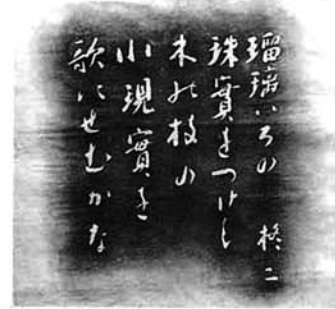 瑠璃いろの　柊二
珠實をつけし
木の枝の
小現實を
歌にせむかな